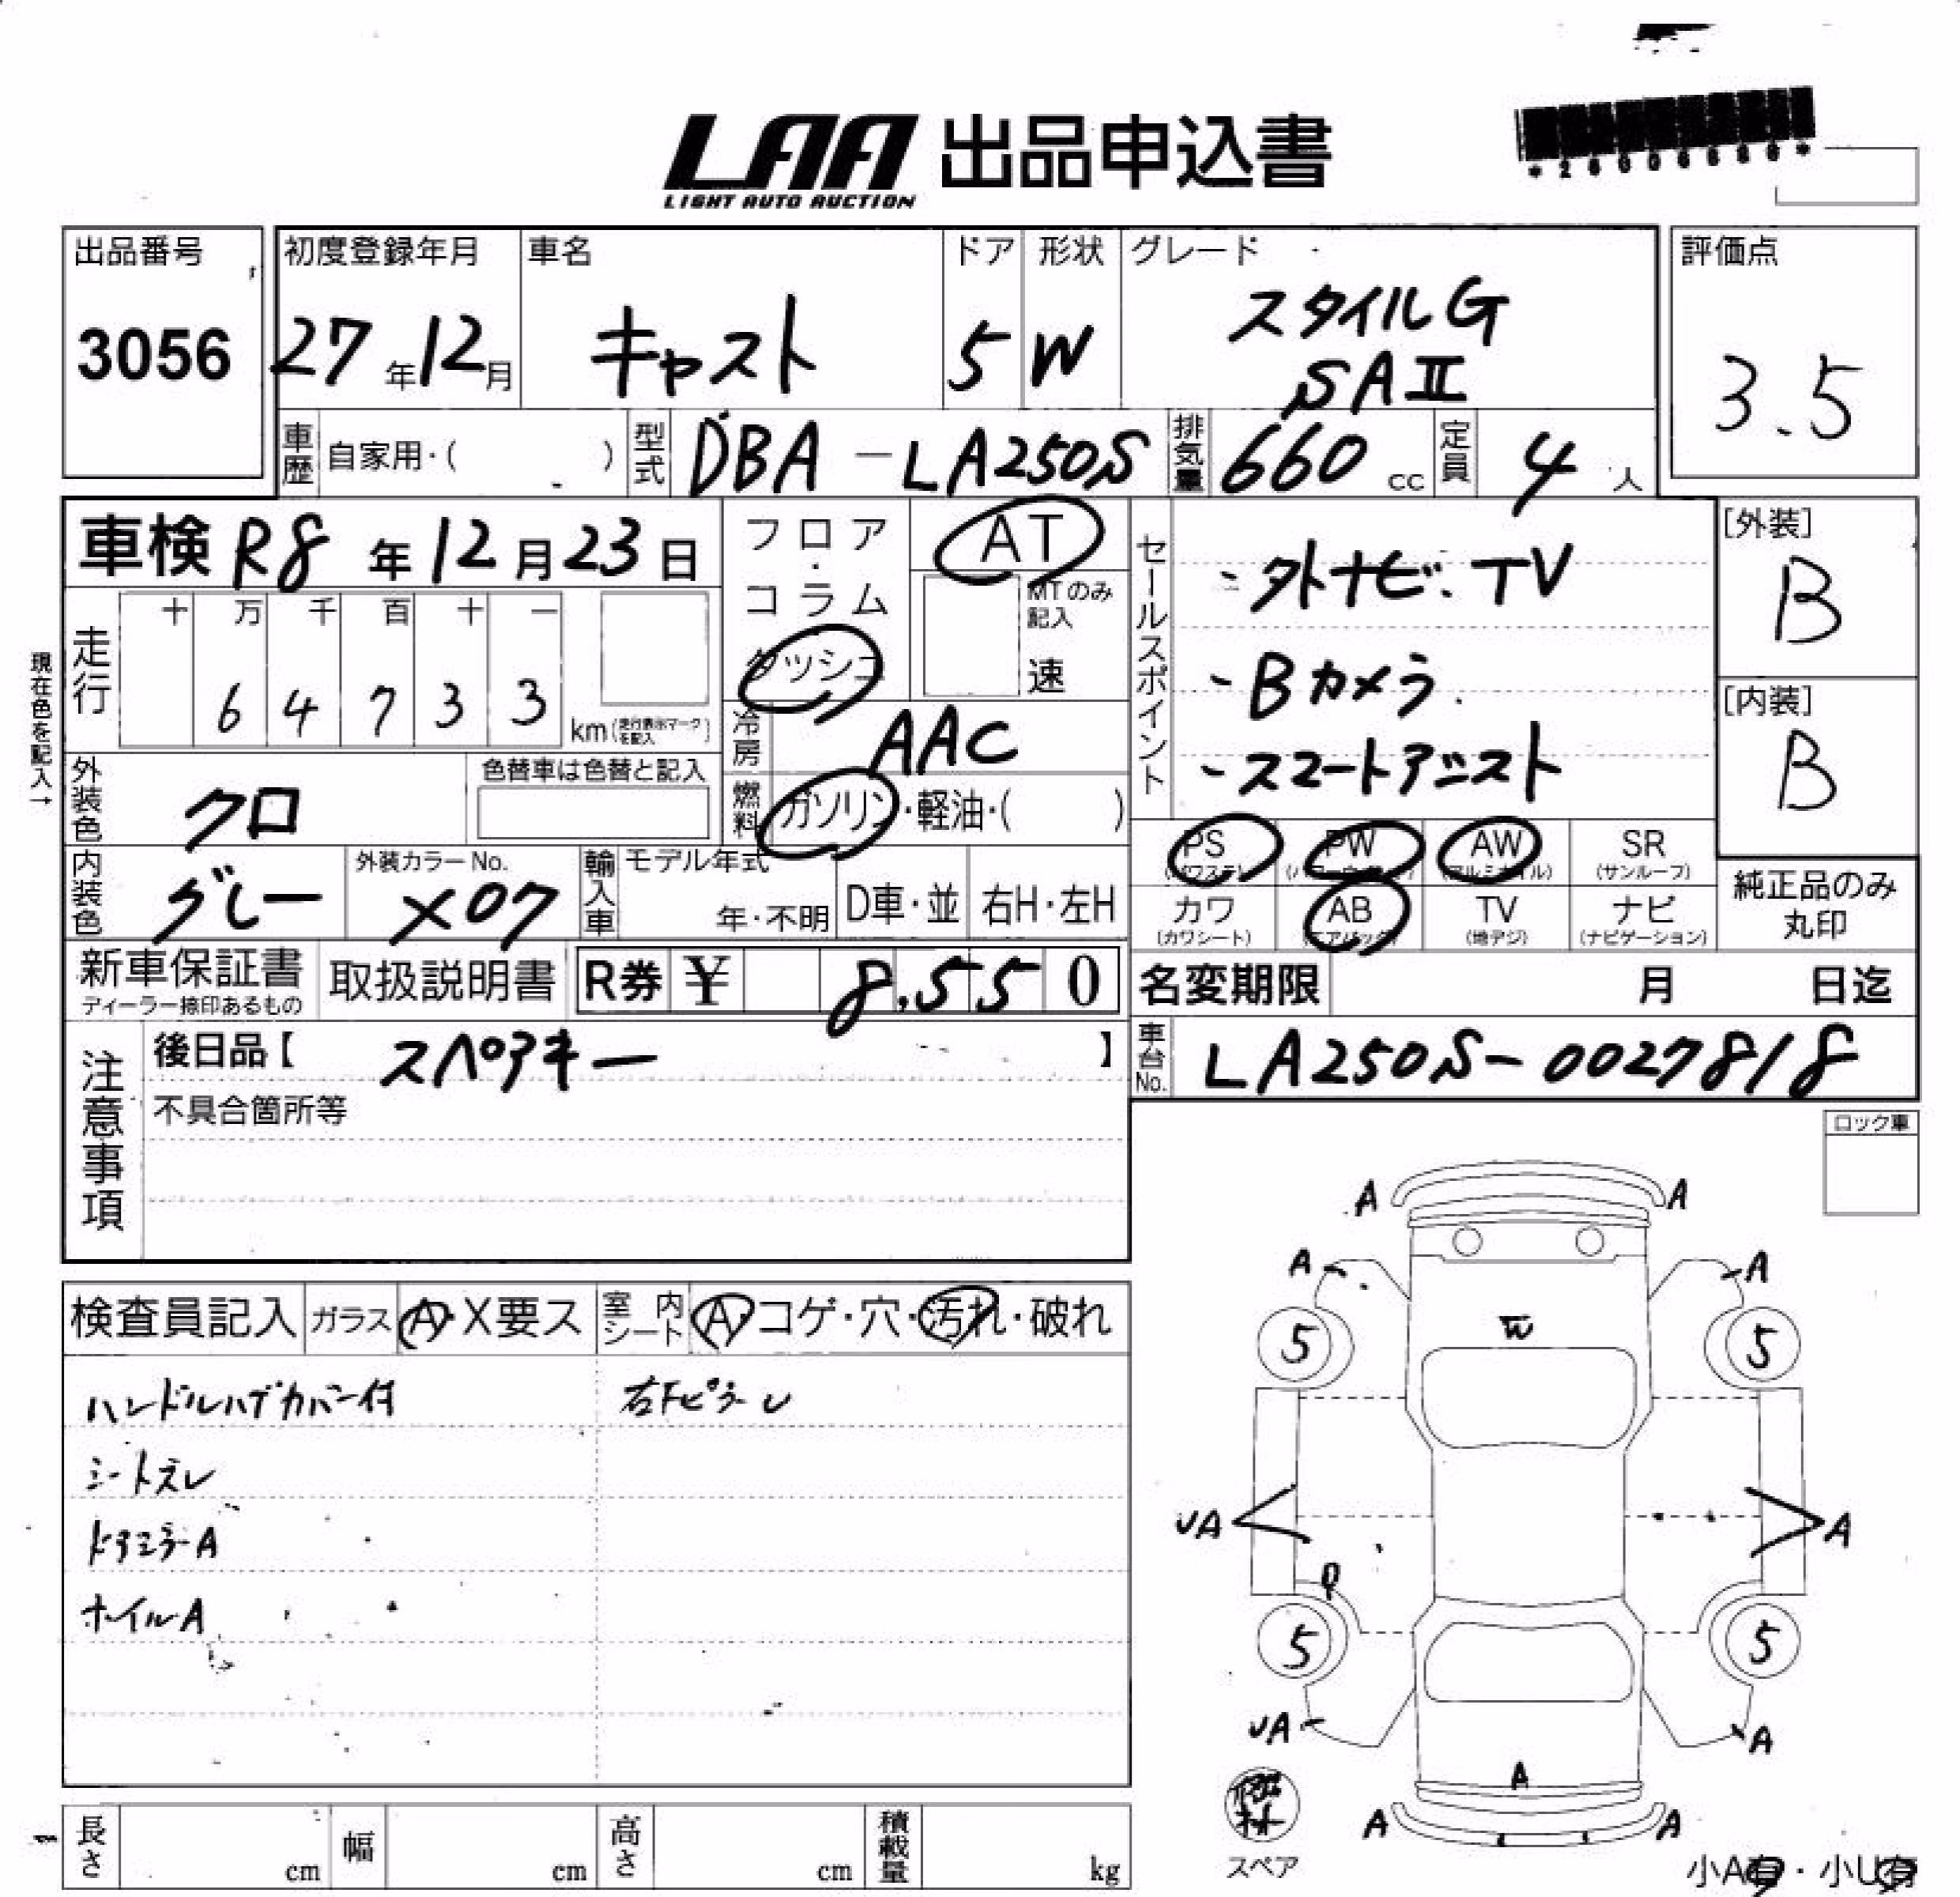 LAA 出品申込書
LIGHT AUTO AUCTION
出品番号
3056
初度登録年月
27年12月
車名
キャスト
ドア
5
形状
W
グレード
スタイルG
SAⅡ
評価点
3.5
車歴 自家用・( )
型式 DBA-LA250S
排気量 660 cc
定員 4 人
車検 R8年12月23日
フロア・コラム
ダッシュ
AT
MTのみ記入
速
セールスポイント
-外ナビ.TV
-Bカメラ.
-スマートアシスト
[外装]
B
[内装]
B
現在色を記入→
走行
十 万 千 百 十 一
6 4 7 3 3
km(走行表示マークを記入)
冷房 AAC
燃料 ガソリン・軽油・( )
外装色 クロ
色替車は色替と記入
内装色 グレー
外装カラーNo.
X07
輸入車
モデル年式
年・不明
D車・並
右H・左H
PS (パワステ)
PW (パワーウィンドウ)
AW (アルミホイル)
SR (サンルーフ)
カワ (カワシート)
AB (エアバック)
TV (地デジ)
ナビ (ナビゲーション)
純正品のみ
丸印
新車保証書
ディーラー捺印あるもの
取扱説明書
R券 ¥ 8,550
名変期限 月 日迄
車台No. LA250S-0027818
注意事項
後日品【 スペアキー 】
不具合箇所等
ロック車
検査員記入
ガラス A・X要ス
室内シート A・コゲ・穴・汚れ・破れ
ハンドルハゲカバー付
右Fピラーレ
シートスレ
ドアミラーA
ホイルA
A A
A A
5 5
W
UA A
P
5 5
UA A
A
A A
スペア
小A有・小U有
長さ cm
幅 cm
高さ cm
積載量 kg